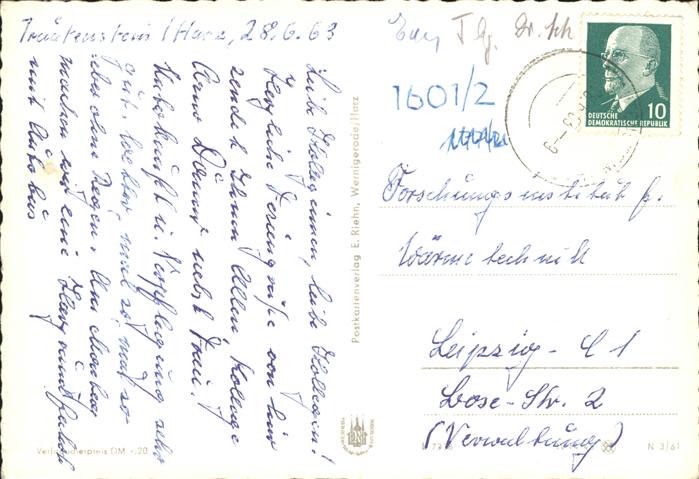 Trautenstein / Harz, 28.6.63
Liebe Kolleginnen, liebe Kollegen!
Herzliche Feriengrüße von hier
sendet Ihnen Allen, Kollege
Arno Dämmr nebst Frau.
Unterkunft u. Verpflegung sehr
gut. Wetter, mal so, mal so
aber ohne Regen. Am Montag
machen wir eine Harzrundfahrt
mit Autobus
Postkartenverlag E. Riehn, Wernigerode/Harz
Tlg. Dr. Sch
1601/2
DEUTSCHE
DEMOKRATISCHE REPUBLIK
10
Forschungsinstitut f.
Wärmetechnik
Leipzig - C 1
Bose-Str. 2
(Verwaltung)
DM -.20
N 3/61